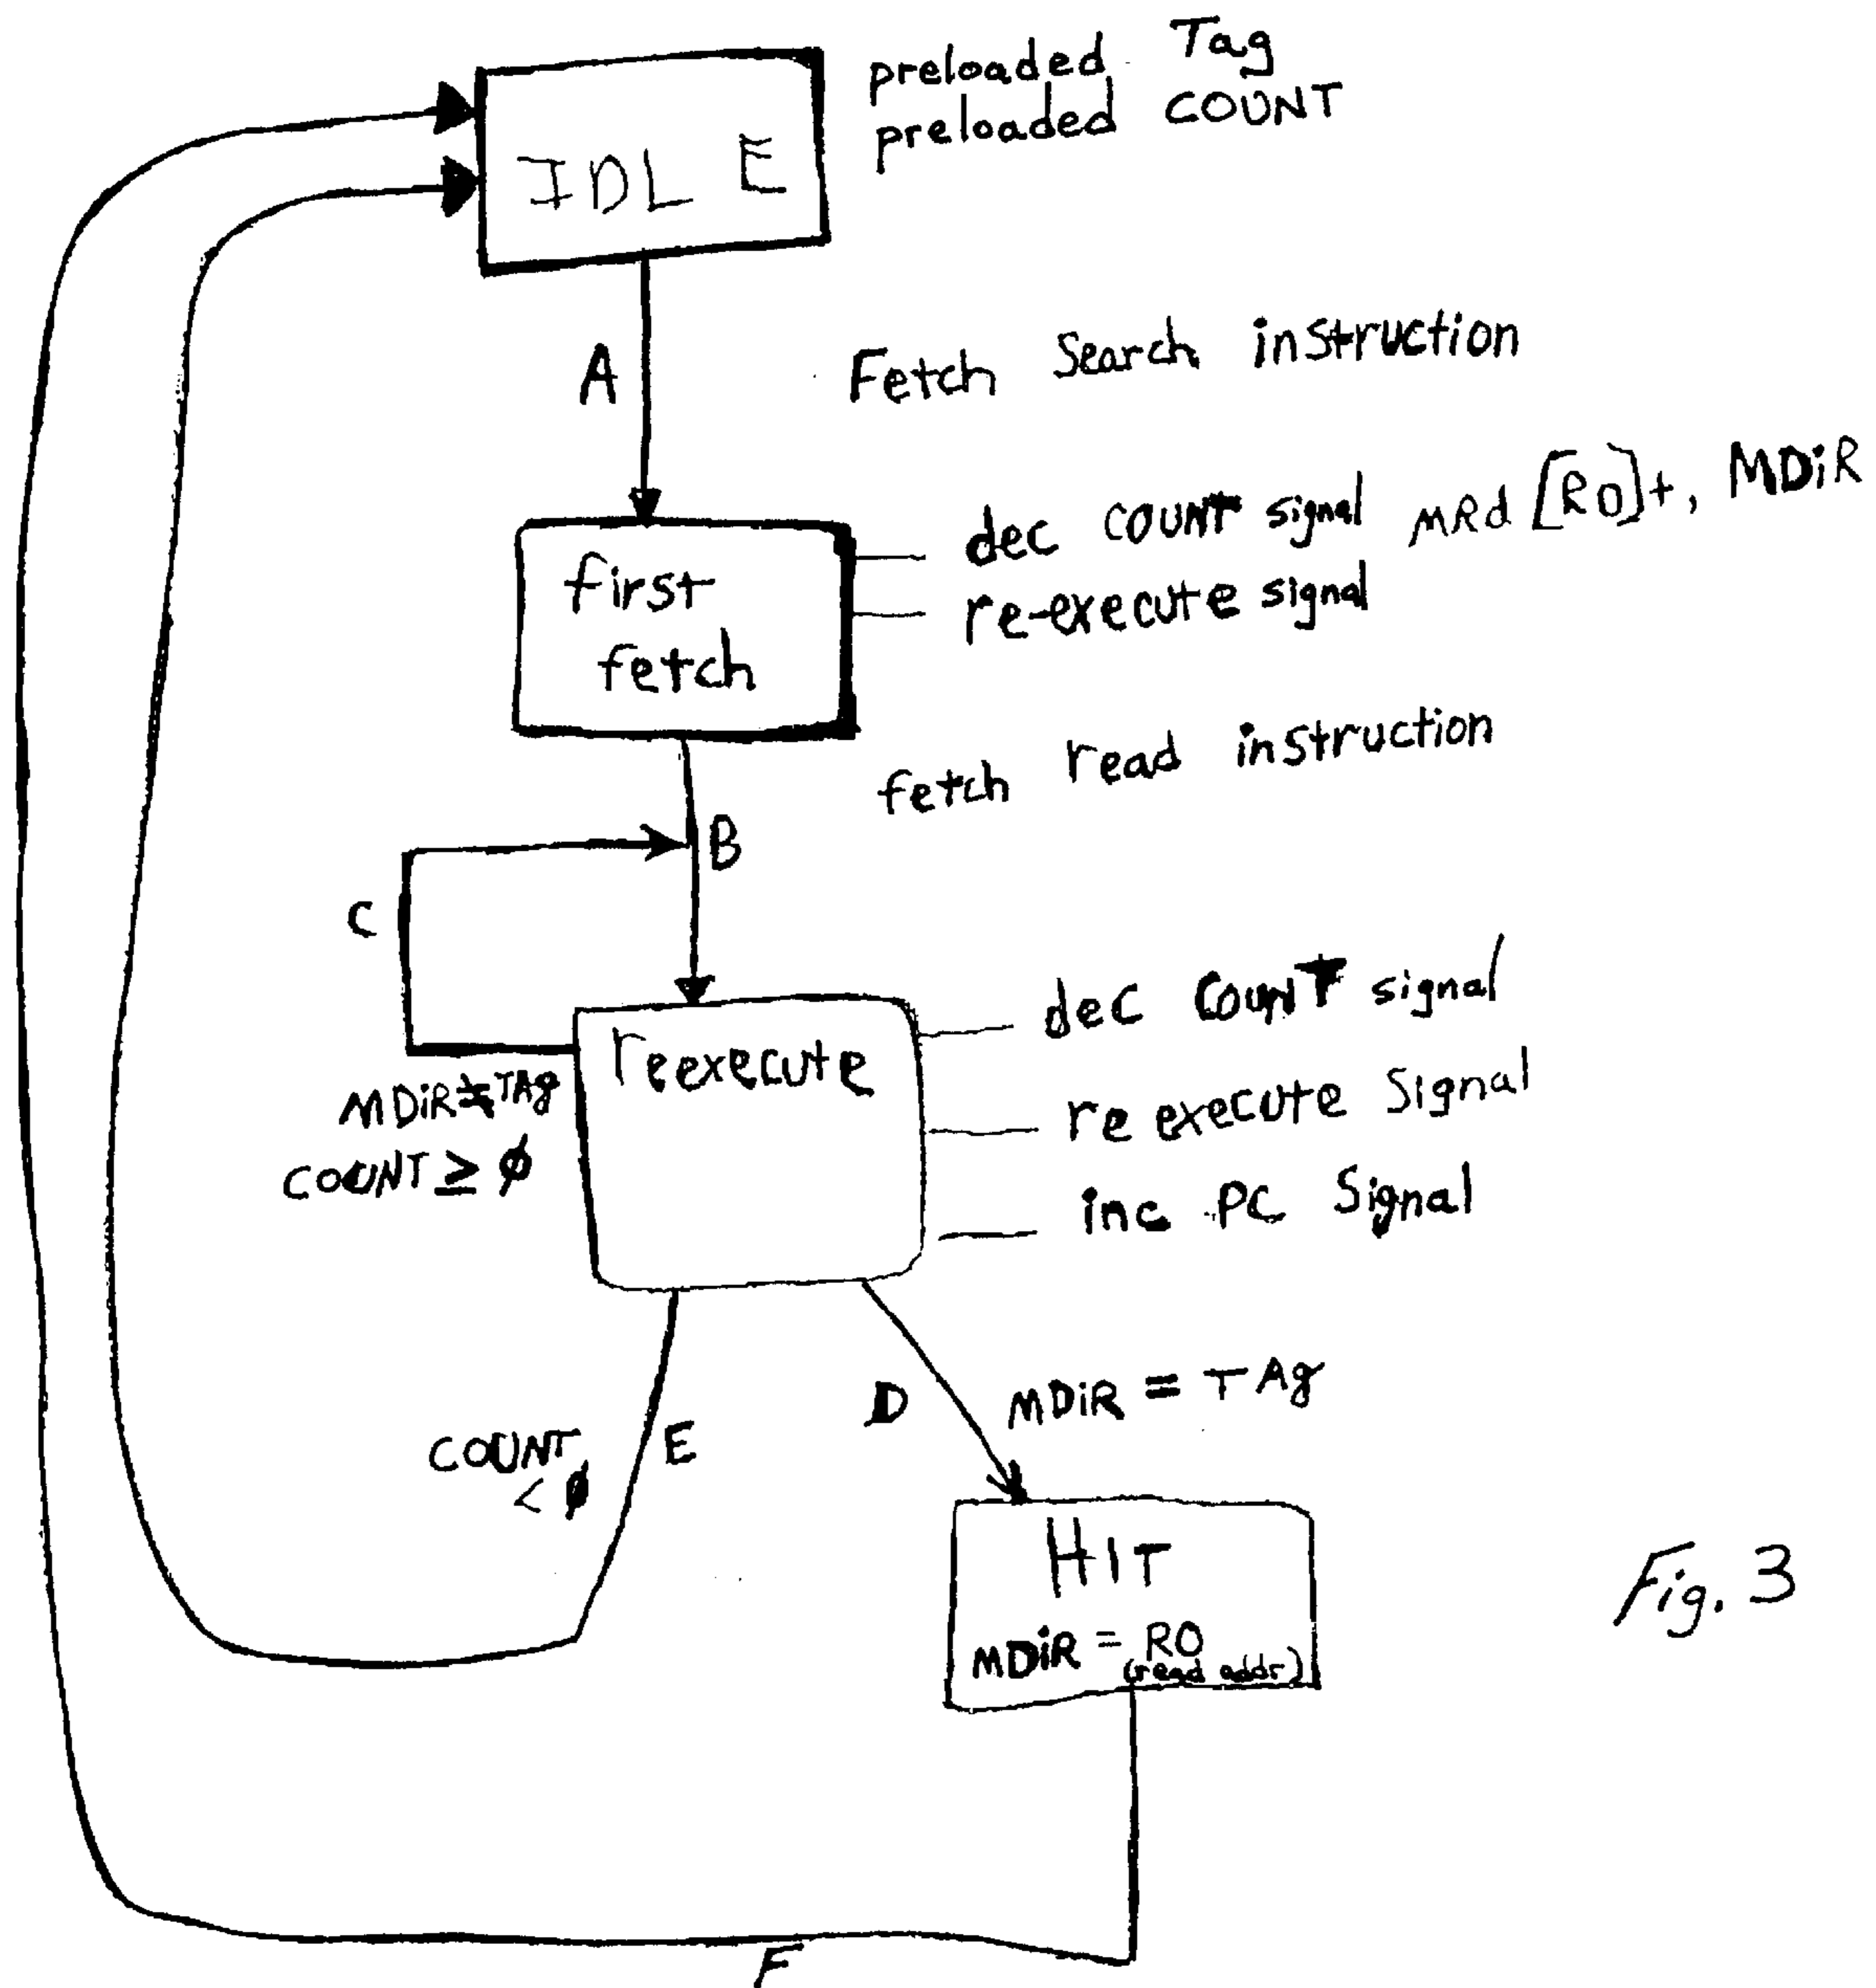 preloaded Tag
preloaded COUNT
IDLE
A
Fetch Search instruction
first
fetch
dec COUNT signal MRd [R0]+, MDiR
re-execute signal
fetch read instruction
B
C
reexecute
dec COUNT signal
re execute Signal
inc PC Signal
MDiR≠TAg
COUNT ≥ ϕ
D
MDiR = TAg
E
COUNT
< ϕ
HIT
MDiR = R0
(read addr)
Fig. 3
F